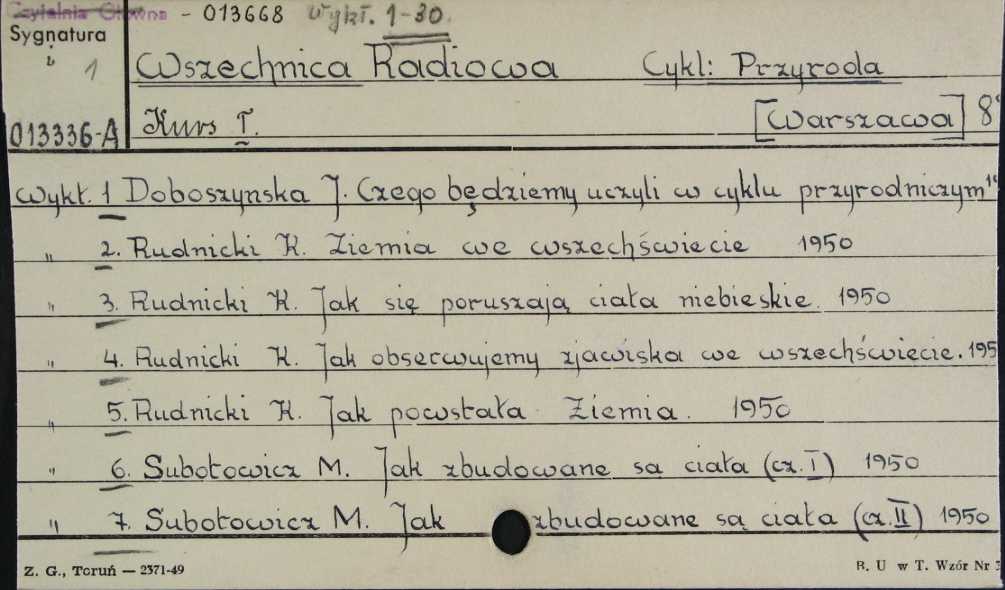 Czytelnia Główna - 013668 Wykł. 1-30.
Sygnatura
i 1
Wszechnica Radiowa Cykl: Przyroda
013336-A Kurs I. [Warszawa] 8°
Wykł. 1 Doboszynska J. Czego będziemy uczyli w cyklu przyrodniczym
" 2. Rudnicki K. Ziemia we wszechświecie 1950
" 3. Rudnicki K. Jak się poruszają ciała niebieskie. 1950
" 4. Rudnicki K. Jak obserwujemy zjawiska we wszechświecie. 195
" 5. Rudnicki K. Jak powstała Ziemia. 1950
" 6. Subotowicz M. Jak zbudowane są ciała (cz. I) 1950
" 7. Subotowicz M. Jak zbudowane są ciała (cz. II) 1950
Z. G., Toruń — 2371-49 B. U w T. Wzór Nr